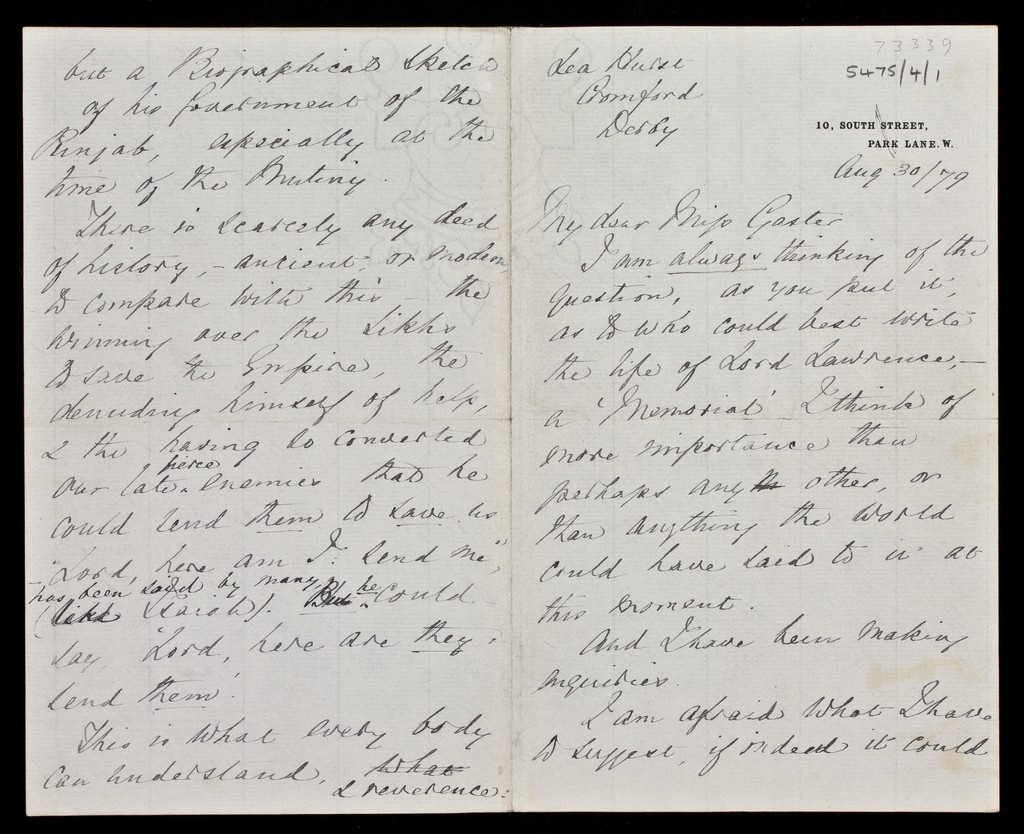 73339
5475/4/1
Lea Hurst
Cromford
Derby
10, SOUTH STREET,
PARK LANE. W.
Aug 30/79
My dear Miss Gaster
I am always thinking of the
question, as you put it,
as to who could best write
the life of Lord Lawrence, -
a 'Memorial' I think of
more importance than
perhaps any other, or
than anything the world
could have said to it at
this moment.
And I have been making
inquiries.
I am afraid what I have
to suggest, if indeed it could
but a Biographical Sketch
of his Government of the
Punjab, especially at the
time of the Mutiny.
There is scarcely any deed
of history, - ancient, or modern,
to compare with this - the
winning over the Sikhs
to save the Empire, the
denuding himself of help,
& the having so converted
our late fierce enemies that he
could send them to save us
"Lord, here am I: send me",
- has been said by many,
(like Isaiah). But he could
say, 'Lord, here are they:
send them'.
This is what every body
can understand, what
& reverence: